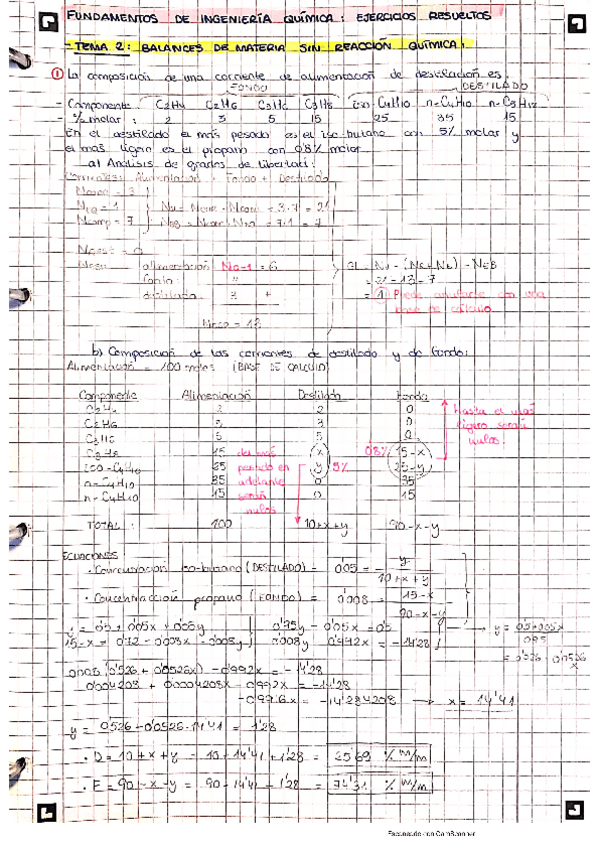 FUNDAMENTOS DE INGENIERÍA QUÍMICA: EJERCICIOS RESUELTOS
- TEMA 2: BALANCES DE MATERIA SIN REACCIÓN QUÍMICA:
① La composición de una corriente de alimentación de destilación es:
FONDO DESTILADO
Componente: C2H4 C2H6 C3H6 C3H8 iso-C4H10 n-C4H10 n-C5H12
% molar: 2 3 5 15 25 35 15
En el destilado el más pesado es el iso-butano con 5% molar y
el más ligero es el propano con 0'8% molar
a) Análisis de grados de libertad:
Corrientes: Alimentación = Fondo + Destilado
= 3
= 1
Ncomp = 7
= 3·7 = 21
= 7·1 = 7
alimentación NA-1 = 6
fondo "
destilado +
= 13
= 21 - 13 - 7
= ① Puede con una
base de cálculo
b) Composición de las corrientes de destilado y de fondo:
Alimentación = 100 moles (BASE DE CÁLCULO)
Componente Alimentación Destilado Fondo
C2H4 2 2 0
C2H6 3 3 0
C3H6 5 5 0
C3H8 15 x 0'8% 15-x
iso-C4H10 25 y 5% 25-y
n-C4H10 35 0 35
n-C4H10 15 0 15
del más
pesado en
adelante
serán
nulos
Hasta el más
ligero serán
nulos.
TOTAL: 100 10+x+y 90-x-y
ECUACIONES
· Concentración iso-butano (DESTILADO) = 0'05 = y / 10+x+y
· Concentración propano (FONDO) = 0'008 = 15-x / 90-x-y
y = 0'5 + 0'05x + 0'05y 0'95y - 0'05x = 0'5 → y = 0'5+0'05x / 0'95
15-x = 0'72 - 0'008x - 0'008y 0'008y - 0'992x = -14'28 = 0'526 + 0'0526x
0'008 (0'526 + 0'0526x) - 0'992x = -14'28
0'004208 + 0'0004208x - 0'992x = -14'28
-0'9916x = -14'284208 → x = 14'41
y = 0'526 + 0'0526·14'41 = 1'28
· D = 10+x+y = 10+14'41+1'28 = 25'69 % m/m
· F = 90-x-y = 90-14'41-1'28 = 74'31 % m/m
Escaneado con CamScanner